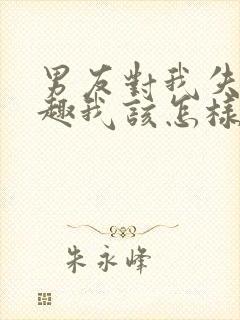 男友對我失
趣我該怎樣
朱永峰